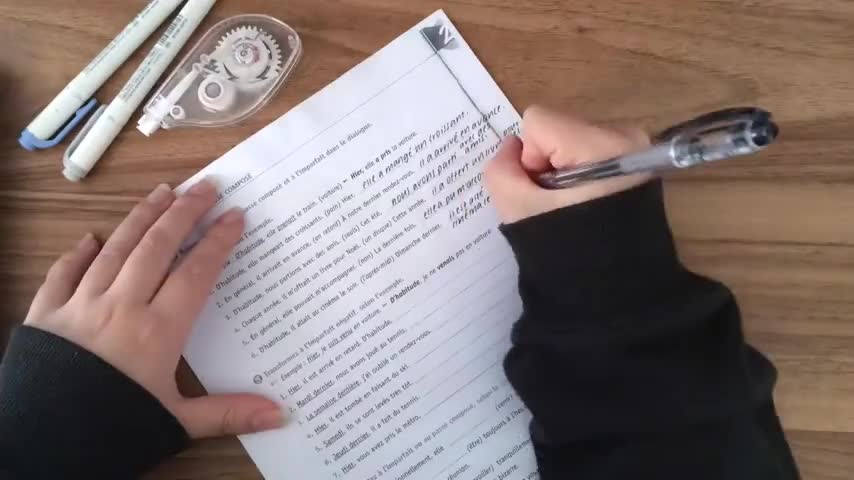 COMPOSÉ
passé composé et à l'imparfait dans le dialogue.
l'exemple.
D'habitude, elle prenait le train. (voiture) – Hier, elle a pris la voiture.
1. D'habitude, elle mangeait des croissants. (pain) Hier, elle a mangé un croissant.
2. En général, il arrivait en avance. (en retard) À notre dernier rendez-vous, il a arrivé en avance.
3. D'habitude, nous partions avec des amis. (seuls) Cet été, nous avons parti avec des amis.
4. Chaque année, il m'offrait un livre pour Noël. (un disque) Cette année, il a offert un livre pour
5. En général, elle pouvait m'accompagner. (non) La dernière fois, elle a pu
6. D'habitude, il allait au cinéma le soir. (l'après-midi) Dimanche dernier, il est
Transformez à l'imparfait négatif, selon l'exemple.
Exemple : Hier, je suis venu en voiture. – D'habitude, je ne venais pas en voiture.
1. Hier, il est arrivé en retard. D'habitude,
2. Mardi dernier, nous avons joué au tennis.
3. La semaine dernière, j'ai oublié un rendez-vous.
4. Hier, il est tombé en faisant du ski.
5. Samedi, ils se sont levés très tôt.
6. Jeudi dernier, il a fait du tennis.
7. Hier, vous avez pris le métro.
à l'imparfait ou au passé composé, selon
elle (venir)
(être) toujours à
réunion.
tranquillement
bizarre.